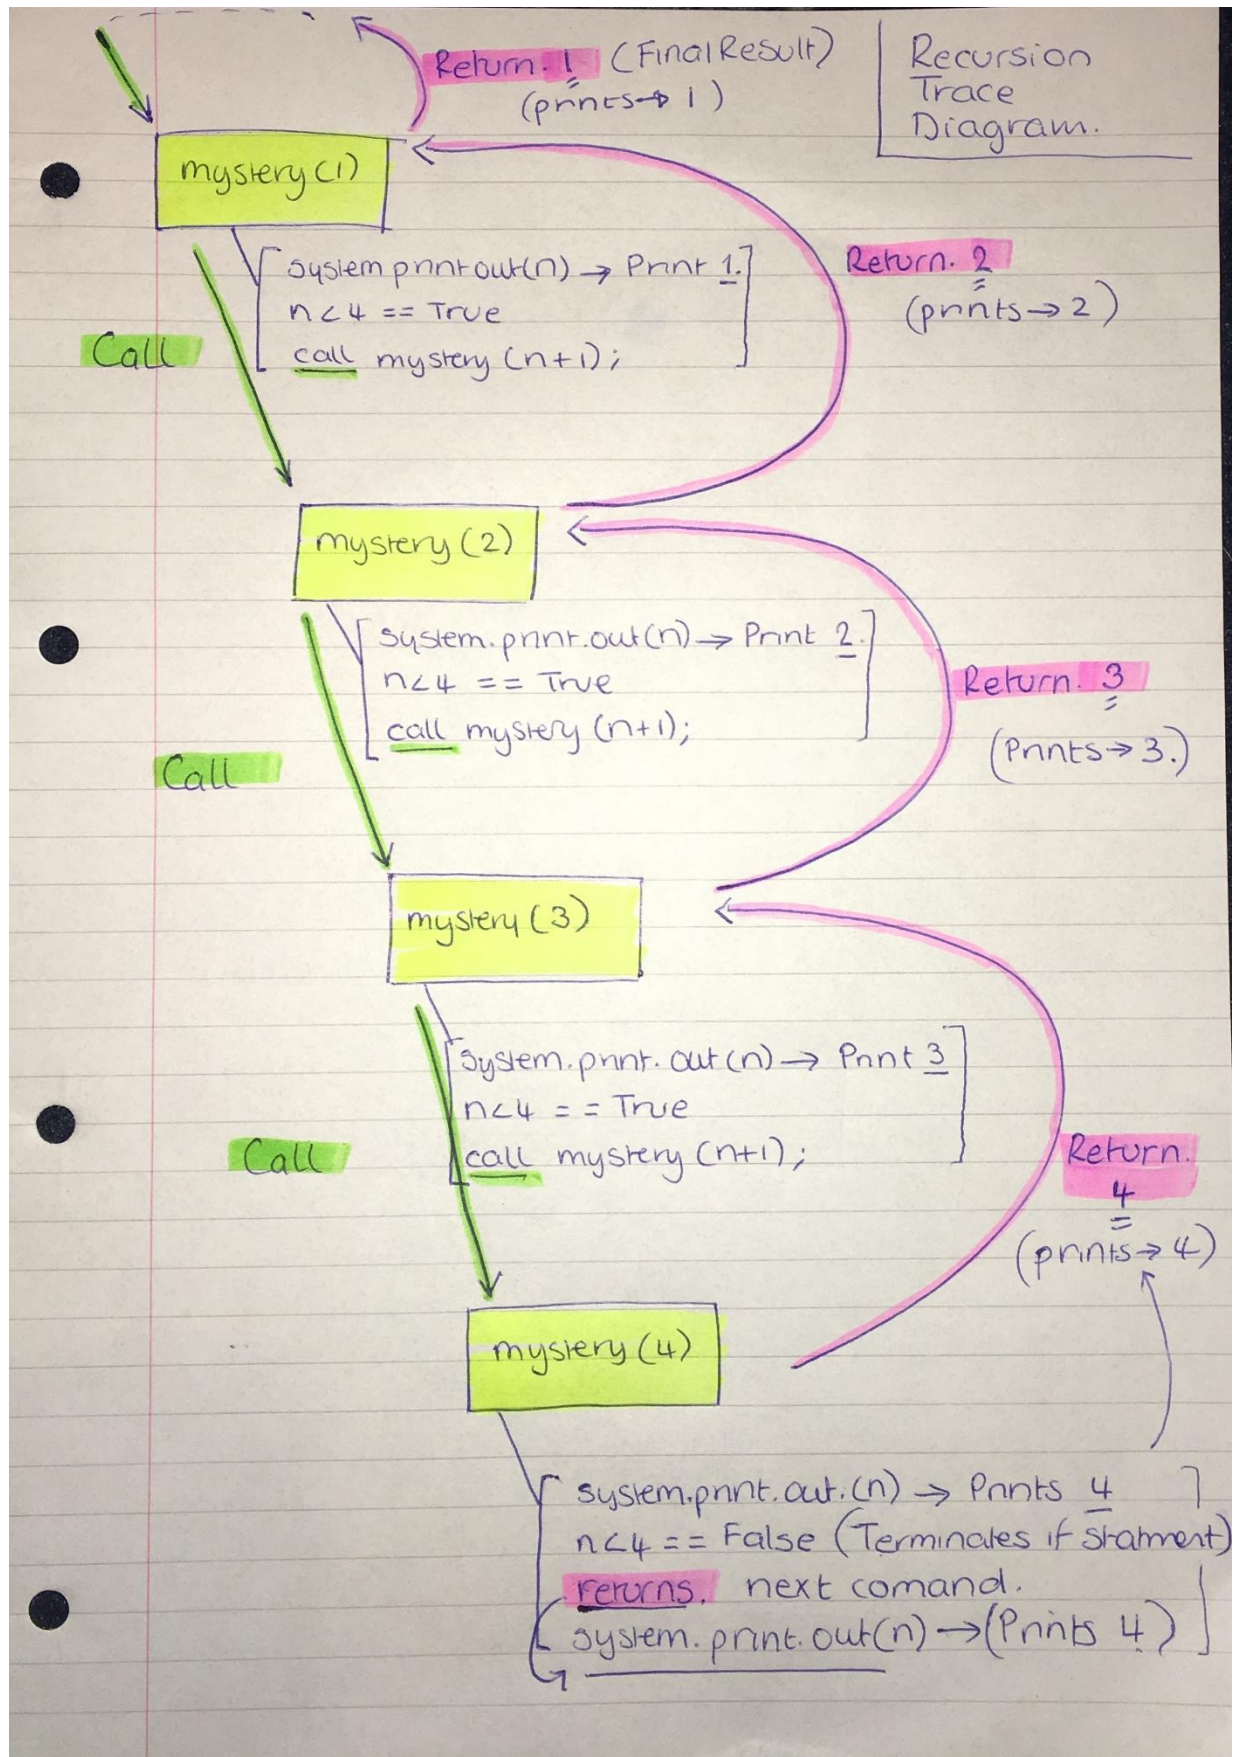 Return. 1 (Final Result)
(prints→ 1)
Recursion
Trace
Diagram.
mystery(1)
system printout(n) → Print 1.
n<4 == True
call mystery (n+1);
Call
Return. 2
(prints→2)
mystery(2)
system.print.out(n)→ Print 2.
n<4 == True
call mystery (n+1);
Call
Return. 3
(Prints→3.)
mystery(3)
system.print.out(n) → Print 3
n<4 == True
call mystery (n+1);
Call
Return.
4
(prints→4)
mystery(4)
system.print.out.(n) → Prints 4
n<4 == False (Terminates if statment)
returns. next comand.
system.print.out(n)→(Prints 4)